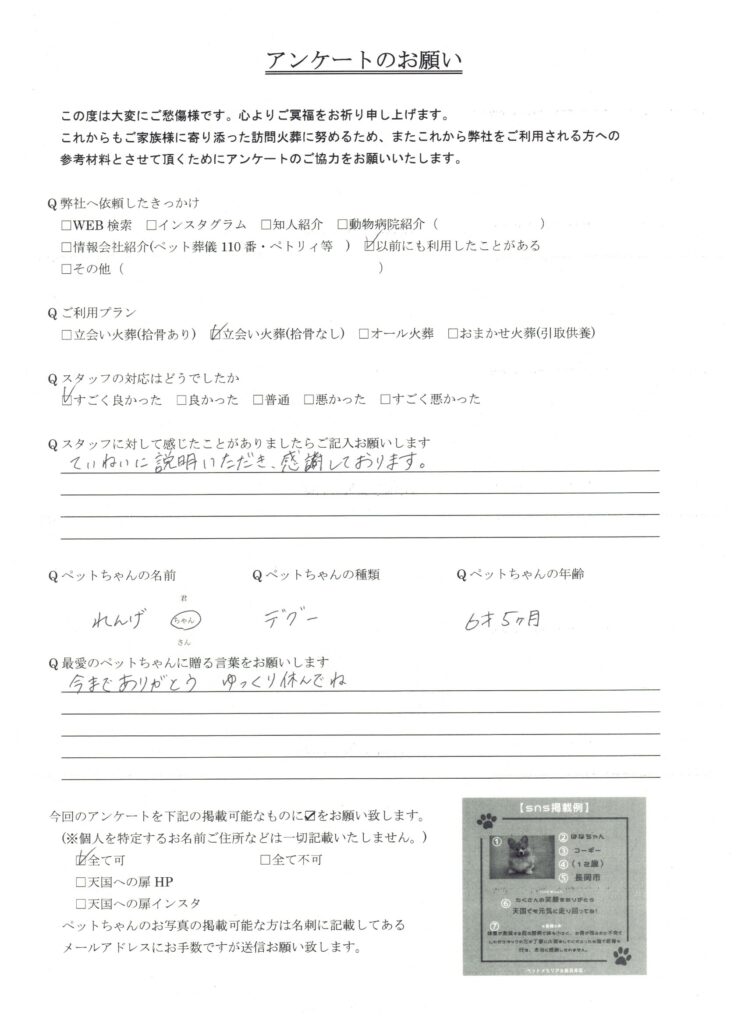 アンケートのお願い
この度は大変にご愁傷様です。心よりご冥福をお祈り申し上げます。
これからもご家族様に寄り添った訪問火葬に努めるため、またこれから弊社をご利用される方への
参考材料とさせて頂くためにアンケートのご協力をお願いいたします。
Q 弊社へ依頼したきっかけ
□WEB 検索 □インスタグラム □知人紹介 □動物病院紹介（ ）
□情報会社紹介(ペット葬儀 110 番・ペトリィ等 ) ☑以前にも利用したことがある
□その他（ ）
Q ご利用プラン
□立会い火葬(拾骨あり) ☑立会い火葬(拾骨なし) □オール火葬 □おまかせ火葬(引取供養)
Q スタッフの対応はどうでしたか
☑すごく良かった □良かった □普通 □悪かった □すごく悪かった
Q スタッフに対して感じたことがありましたらご記入お願いします
ていねいに説明いただき、感謝しております。
Q ペットちゃんの名前 Q ペットちゃんの種類 Q ペットちゃんの年齢
君
れんげ ちゃん デグー 6才5ヶ月
さん
Q 最愛のペットちゃんに贈る言葉をお願いします
今までありがとう ゆっくり休んでね
今回のアンケートを下記の掲載可能なものに☑をお願い致します。
(※個人を特定するお名前ご住所などは一切記載いたしません。)
☑全て可 □全て不可
□天国への扉 HP
□天国への扉インスタ
ペットちゃんのお写真の掲載可能な方は名刺に記載してある
メールアドレスにお手数ですが送信お願い致します。
【sns掲載例】
① ② はなちゃん
③ コーギー
④ (12歳)
⑤ 長岡市
⑥ たくさんの笑顔をありがとう
天国でも元気に走り回ってね!
⑦